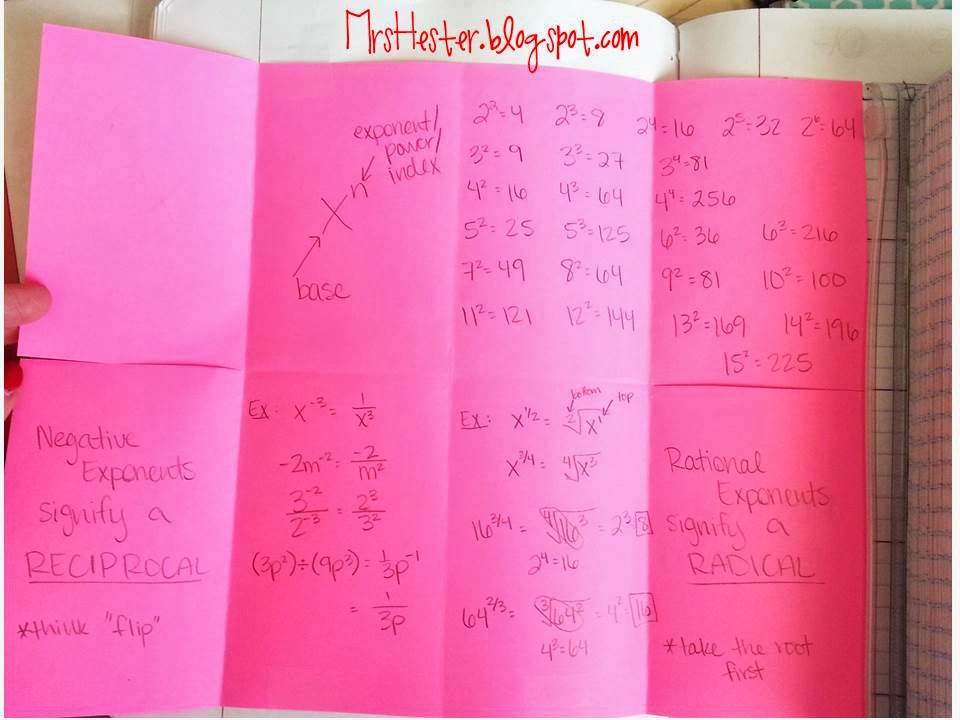 MrsHester.blogspot.com
exponent/
power/
index
n
X
base
2³=4 2³=8 2⁴=16 2⁵=32 2⁶=64
3²=9 3³=27 3⁴=81
4²=16 4³=64 4⁴=256
5²=25 5³=125 6²=36 6³=216
7²=49 8²=64 9²=81 10²=100
11²=121 12²=144 13²=169 14²=196
15²=225
Negative
Exponents
signify a
RECIPROCAL
*think "flip"
Ex: x⁻³ = 1/x³
-2m⁻² = -2/m²
3⁻²/2⁻³ = 2³/3²
(3p²)÷(9p³) = 1/3p⁻¹
= 1/3p
bottom top
Ex: x^1/2 = ²√x¹
x^3/4 = ⁴√x³
16^3/4 = ⁴√16³ = 2³ 8
2⁴=16
64^2/3 = ³√64² = 4² = 16
4³=64
Rational
Exponents
signify a
RADICAL
*take the root
first